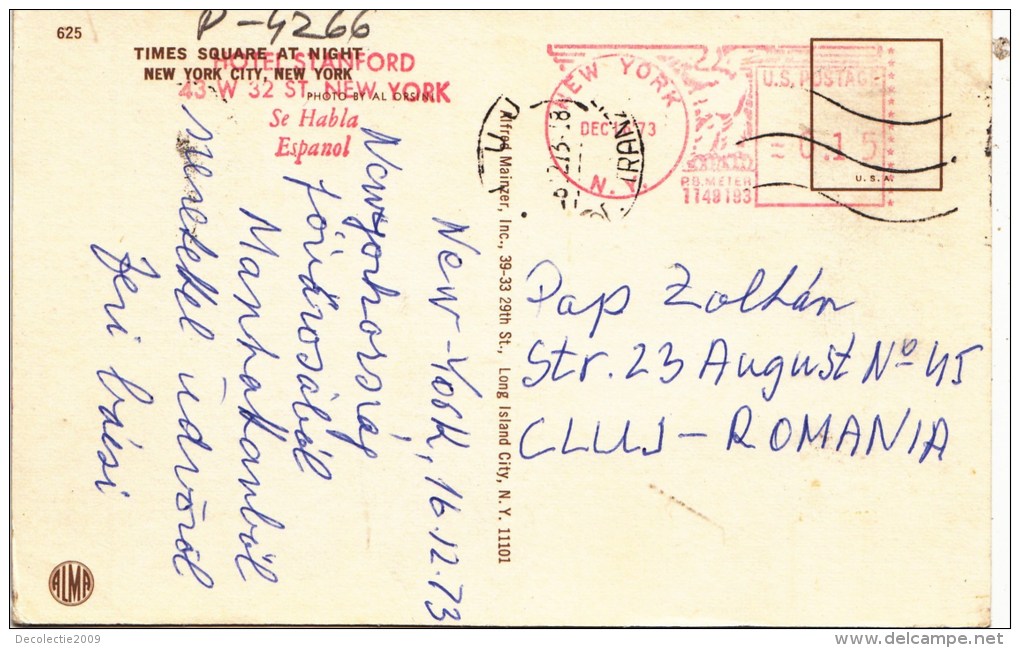 625
P-4266
TIMES SQUARE AT NIGHT
NEW YORK CITY, NEW YORK
PHOTO BY AL ORSINI
HOTEL STANFORD
43 W 32 ST. NEW YORK
Se Habla
Espanol
NEW YORK
DEC 16 73
N. Y.
P.B. METER
1148183
U.S. POSTAGE
= 0.15
U.S.A.
New-York, 16.12.73
Newyorkország
fővárosából
Manhattanból
üdvözöl
Jeri bácsi
Alfred Mainzer, Inc., 39-33 29th St., Long Island City, N. Y. 11101
Pap Zoltán
Str. 23 August No 45
CLUJ - ROMANIA
ALMA
Decolectie2009
delcampe.net